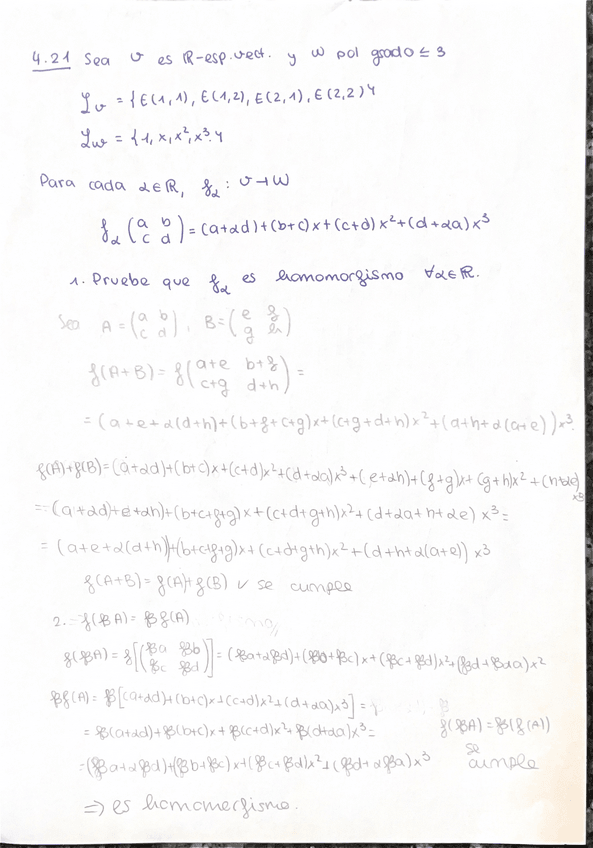 4.21 Sea V es R-esp.vect. y W pol grado ≤ 3
ℒv = {E(1,1), E(1,2), E(2,1), E(2,2)}
ℒw = {1, x, x², x³}
Para cada α∈R, fα : V→W
fα (a b c d) = (a+αd)+(b+c)x+(c+d)x²+(d+αa)x³
1. Pruebe que fα es homomorfismo ∀α∈R.
Sea A = (a b c d), B = (e f g h)
f(A+B) = f(a+e b+f c+g d+h) =
= (a+e+α(d+h)+(b+f+c+g)x+(c+g+d+h)x²+(d+h+α(a+e))x³.
f(A)+f(B)=(a+αd)+(b+c)x+(c+d)x²+(d+αa)x³+(e+αh)+(f+g)x+(g+h)x²+(h+αe)x³
= (a+αd)+e+αh)+(b+c+f+g)x+(c+d+g+h)x²+(d+αa+h+αe)x³=
= (a+e+α(d+h))+(b+c+f+g)x+(c+d+g+h)x²+(d+h+α(a+e))x³
f(A+B) = f(A)+f(B) ✓ se cumple
2. f(βA) = βf(A)
f(βA) = f[(βa βb βc βd)] = (βa+αβd)+(βb+βc)x+(βc+βd)x²+(βd+βαa)x²
βf(A) = β[(a+αd)+(b+c)x+(c+d)x²+(d+αa)x³] =
= β(a+αd)+β(b+c)x+β(c+d)x²+β(d+αa)x³=
f(βA) = β(f(A))
= (βa+αβd)+(βb+βc)x+(βc+βd)x²+(βd+αβa)x³
se cumple
⇒ es homomorfismo.